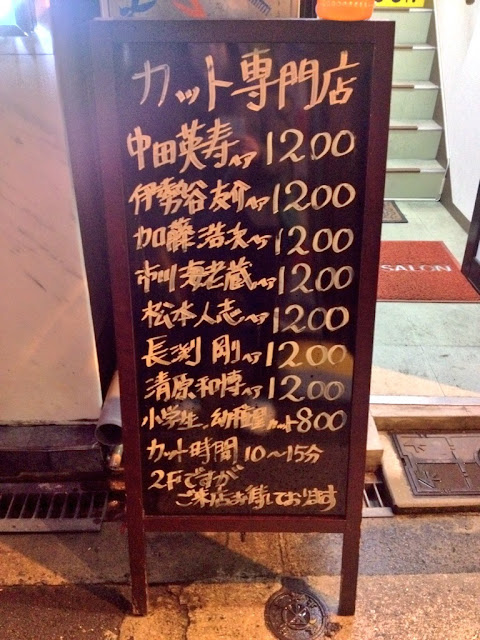 カット専門店
中田英寿ヘア 1200
伊勢谷友介ヘア 1200
加藤浩次ヘア 1200
市川海老蔵ヘア 1200
松本人志ヘア 1200
長渕 剛ヘア 1200
清原和博ヘア 1200
小学生、幼稚園カット800
カット時間 10〜15分
2Fですが
ご来店お待しております
SALON